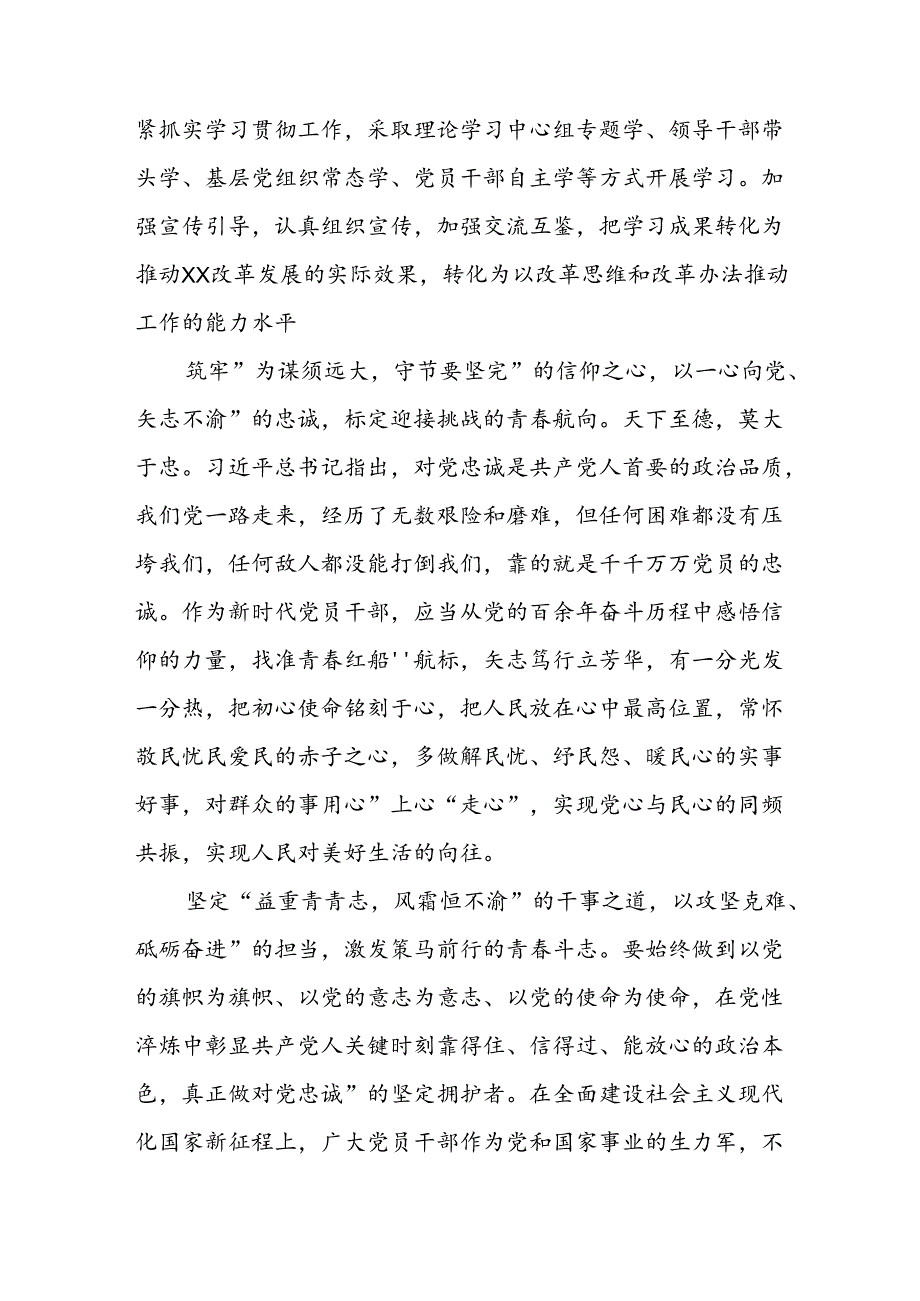 紧抓实学习贯彻工作，采取理论学习中心组专题学、领导干部带
头学、基层党组织常态学、党员干部自主学等方式开展学习。加
强宣传引导，认真组织宣传，加强交流互鉴，把学习成果转化为
推动XX改革发展的实际效果，转化为以改革思维和改革办法推动
工作的能力水平
筑牢”为谋须远大，守节要坚完”的信仰之心，以一心向党、
矢志不渝”的忠诚，标定迎接挑战的青春航向。天下至德，莫大
于忠。习近平总书记指出，对党忠诚是共产党人首要的政治品质，
我们党一路走来，经历了无数艰险和磨难，但任何困难都没有压
垮我们，任何敌人都没能打倒我们，靠的就是千千万万党员的忠
诚。作为新时代党员干部，应当从党的百余年奋斗历程中感悟信
仰的力量，找准青春红船''航标，矢志笃行立芳华，有一分光发
一分热，把初心使命铭刻于心，把人民放在心中最高位置，常怀
敬民忧民爱民的赤子之心，多做解民忧、纾民怨、暖民心的实事
好事，对群众的事用心”上心“走心”，实现党心与民心的同频
共振，实现人民对美好生活的向往。
坚定“益重青青志，风霜恒不渝”的干事之道，以攻坚克难、
砥砺奋进”的担当，激发策马前行的青春斗志。要始终做到以党
的旗帜为旗帜、以党的意志为意志、以党的使命为使命，在党性
淬炼中彰显共产党人关键时刻靠得住、信得过、能放心的政治本
色，真正做对党忠诚”的坚定拥护者。在全面建设社会主义现代
化国家新征程上，广大党员干部作为党和国家事业的生力军，不